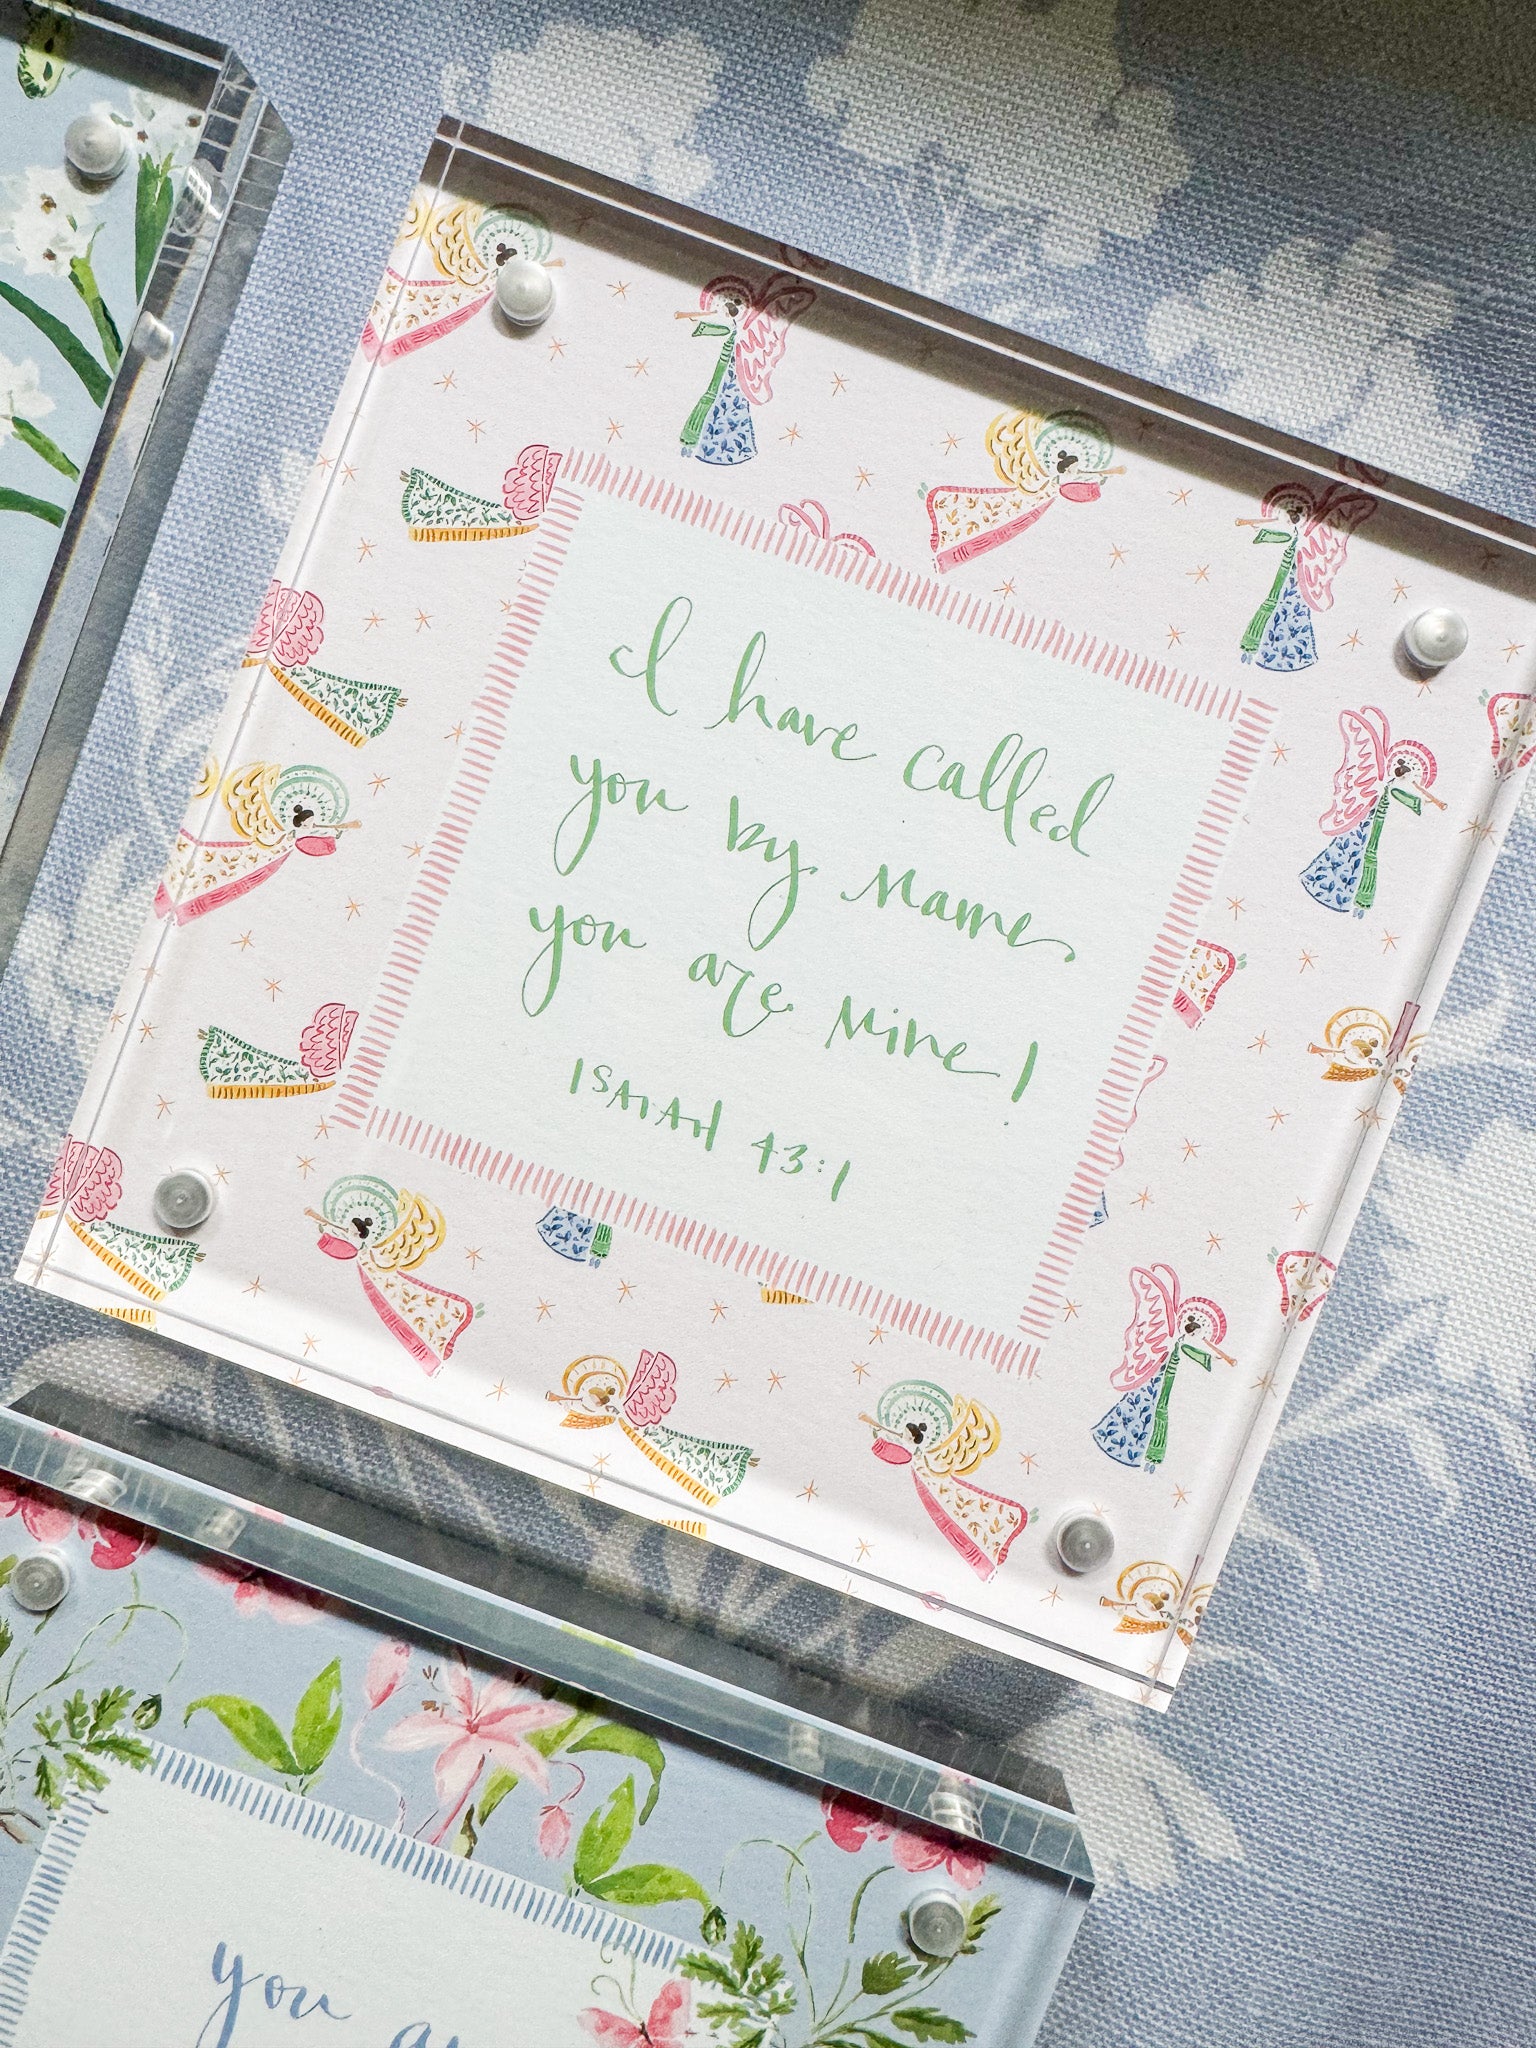 I have called
you by name
you are mine!
ISAIAH 43:1
you